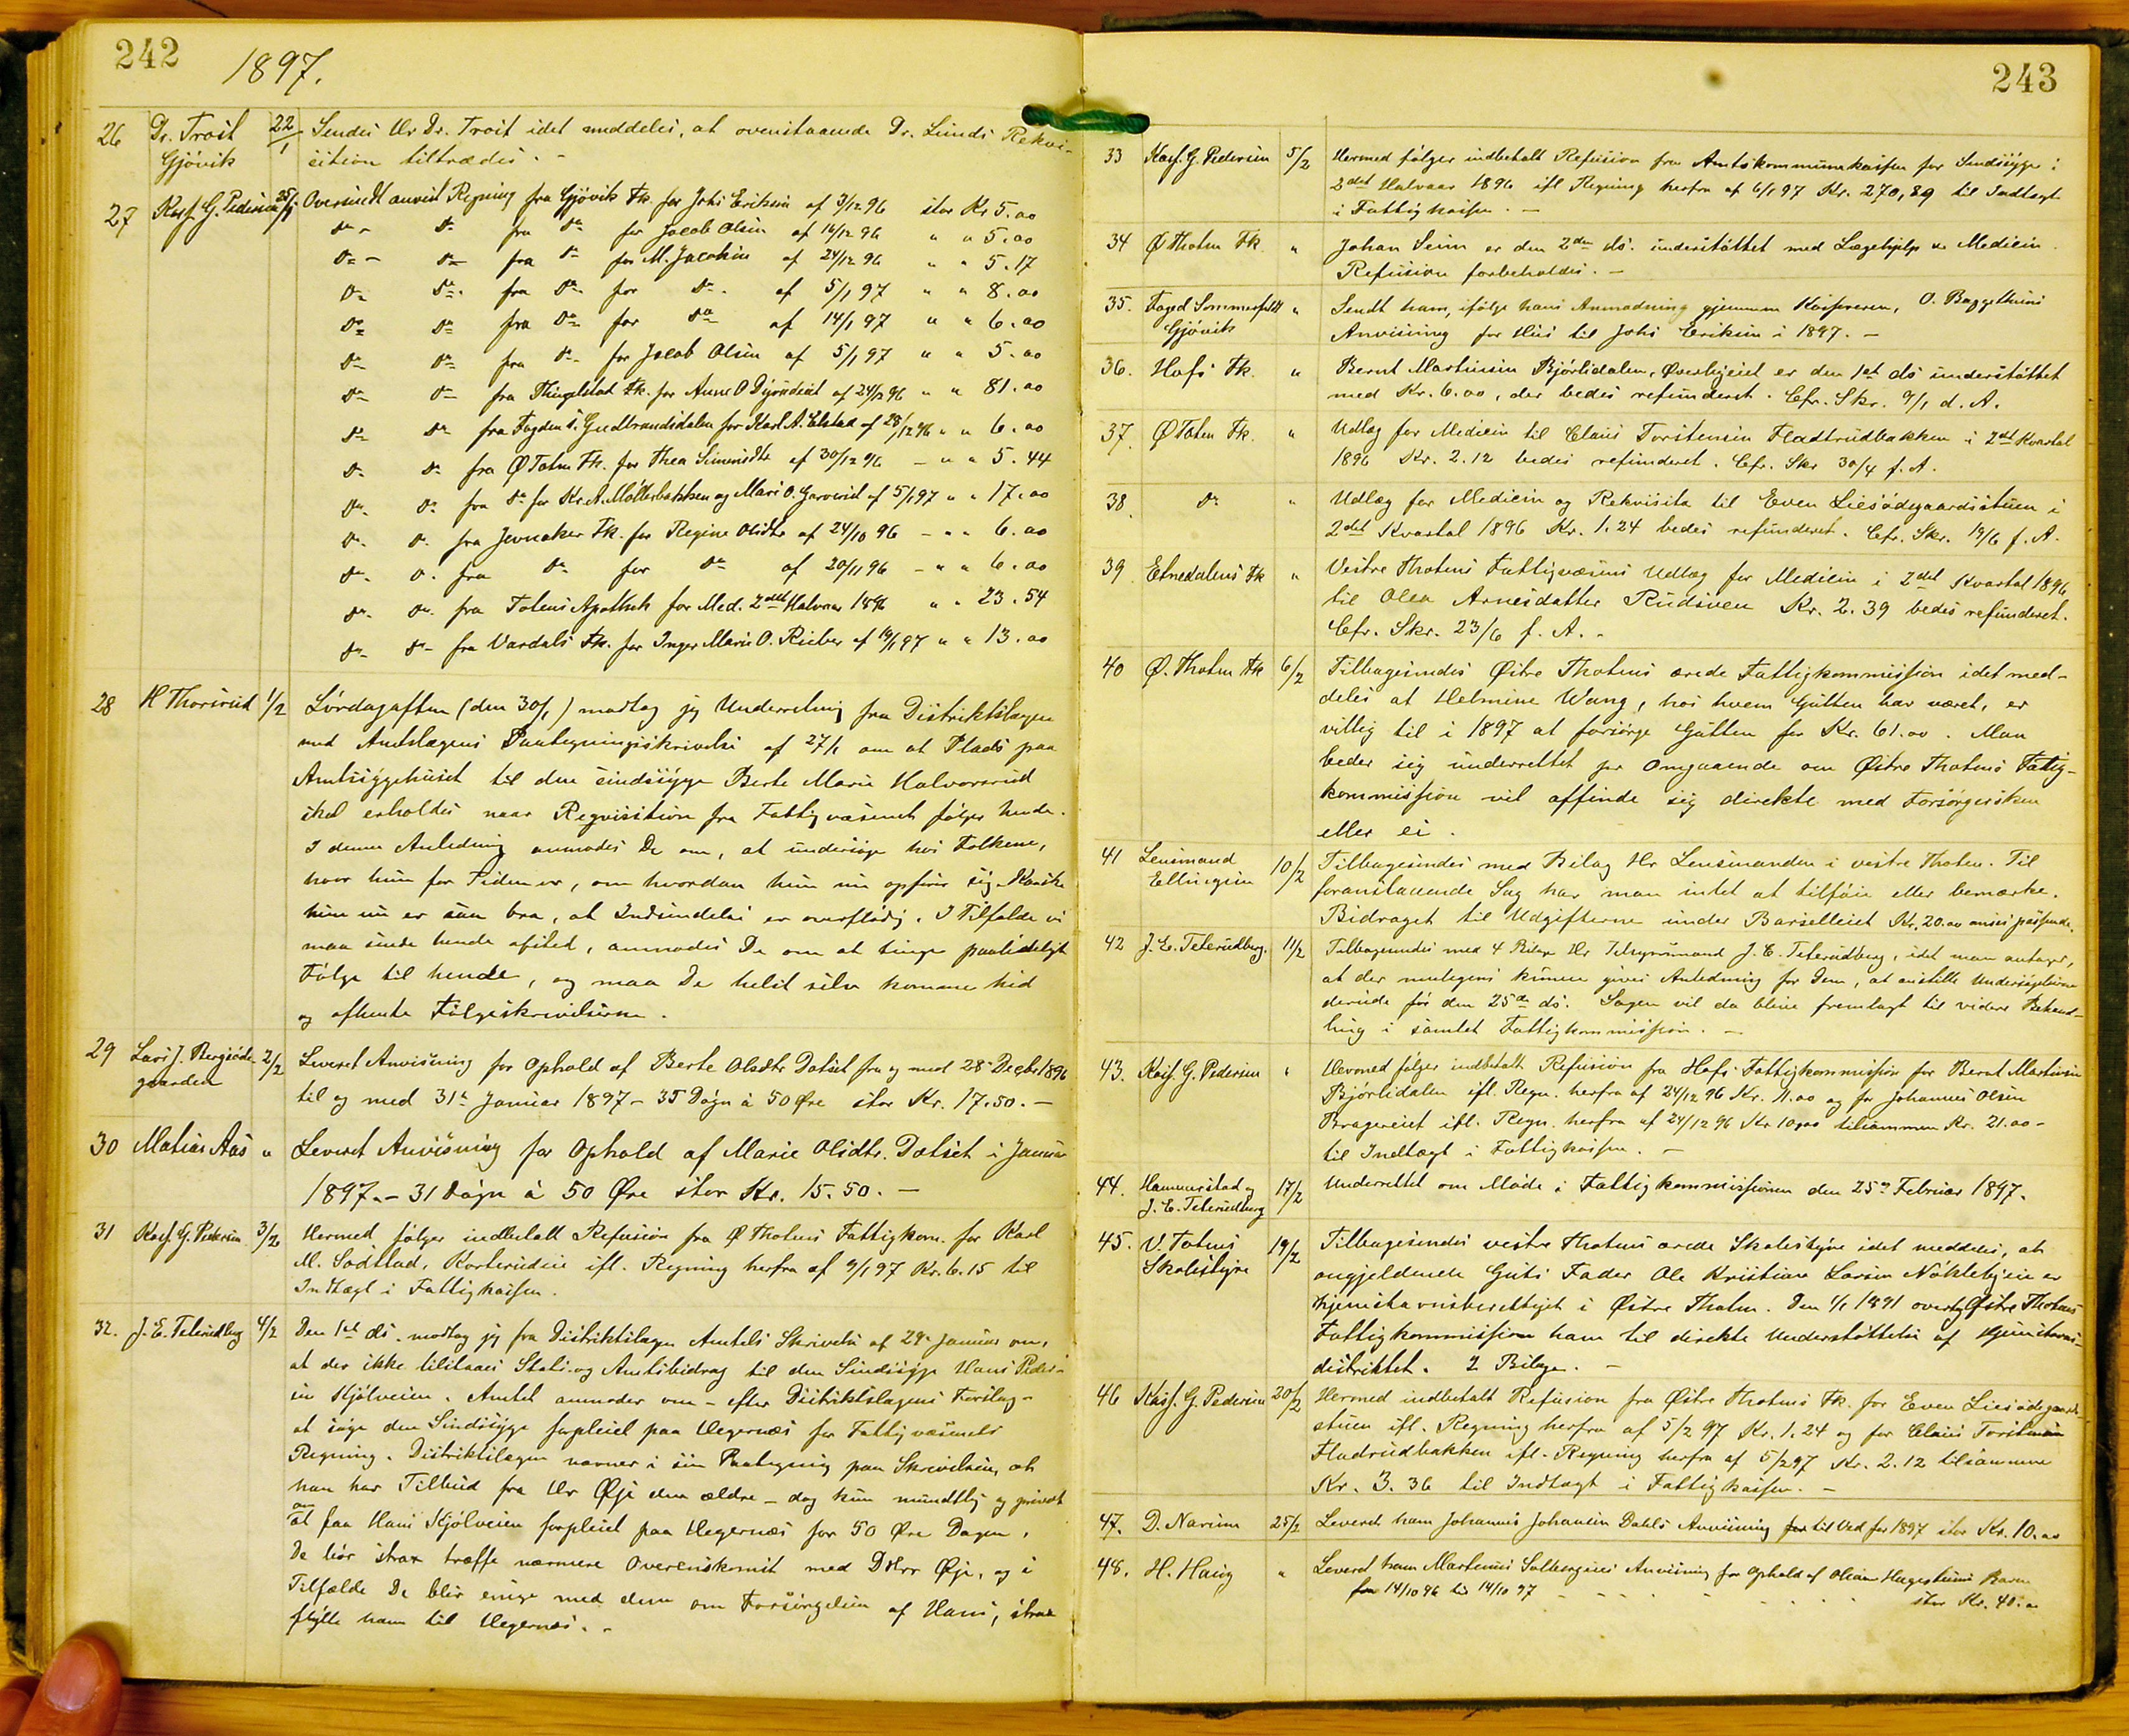 242
1897.
26 Dr. Trost 22/1 Sendes Hr Dr. Trost idet meddeles, at ovenstaaende Dr. Lunds Rekvi-
Gjövik sition tiltrædes. -
27 Kasf. G. Pedersen 25/1 Oversendt anvist Regning fra Gjövik Fk. for Johs Eriksen af 3/12 96 stor Kr 5.00
do - do fra do for Jacob Olsen af 16/12 96 " " 5.00
do - do fra do for M. Jacobsen af 24/12 96 " " 5.17
do do. fra do for do. af 5/1 97 " " 8.00
do do fra do for do af 14/1 97 " " 6.00
do do fra do for Jacob Olsen af 5/1 97 " " 5.00
do do fra Thingelstad Fk. for Anne O. af 24/12 96 " " 81.00
do do fra Fogden i S. Gudbrandsdalen for Karl A. Elstad af 28/12 96 " " 6.00
do do fra ØToten Fk. for Thea Simensdtr af 30/12 96 - " " 5.44
do. do fra do for Kr. A. Möllerbakken og Mari O. af 5/1 97 " " 17.00
do. do. fra Jevnaker Fk. for Regine Olsdtr af 24/10 96 - " " 6.00
do. do. fra do for do af 20/11 96 - " " 6.00
do. do. fra Totens Apothek for Med. 2det Halvaar 1896 " " 23.54
do do fra Vardals Fk. for Inger Marie O. Rieber af 19/1 97 " " 13.00
28 H Thorsrud 1/2 Lördagaften (den 30/1) modtog jeg Underretning fra Distriktslægen
med Amtslægens Paategningsskrivelse af 27/1 om at Plads paa
Amtssygehuset til den sindssyge Berte Marie Halvorsrud
skal erholdes naar Reqvisition fra Fattigvæsenet følger hende.
I denne Anledning anmodes De om, at undersöge hos Folkene,
hvor hun for Tiden er, om hvordan hun nu opförer sig. Kanske
hun nu er saa bra, at Indsendelse er overflödig. I Tilfælde vi
maa sende hende afsted, anmodes De om at tinge paalideligt
Fölge til hende, og maa De helst selv komme hid
og afhente Fölgeskrivelserne.
29 Lars J. Bergsöde- 2/2 Leveret Anvisning for Ophold af Berte Olsdtr Dotset fra og med 28de Decbr 1896
gaarden til og med 31te Januar 1897 - 35 Dögn à 50 Øre stor Kr. 17.50. -
30 Matias Aas " Leveret Anvisning for Ophold af Marie Olsdtr. Dotset i Januar
1897. - 31 Dögn à 50 Øre stor Kr. 15.50. -
31 Kasf. G. Pedersen 3/2 Hermed fölger indbetalt Refusion fra ØThotens Fattigkom. for Karl
M. Sodstad, Korterudeie ifl. Regning herfra af 9/1 97 Kr. 6.15 til
Indtægt i Fattigkassen.
32. J. E. Teterudberg 4/2 Den 1ste ds. modtog jeg fra Distriktslægen Amtets Skrivelse af 29de Januar om,
at der ikke tilstaaes Stats- og Amtsbidrag til den Sindssyge Hans Peder-
sen Kjölveien. Amtet anmoder om - efter Distriktslægens Forslag -
at söge den Sindssyge forpleiet paa Hegernæs for Fattigvæsenets
Regning. Distriktslægen nævner i sin Paategning paa Skrivelsen, at
han har Tilbud fra Hr Øje den ældre - dog kun mundtlig og privat
om
at faa Hans Kjölveien forpleiet paa Hegernæs for 50 Øre Dagen.
De bör strax træffe nærmere Overenskomst med DHrr Øje, og i
Tilfælde De blir enige med dem om Forsörgelsen af Hans, strax
flytte ham til Hegernæs. -
243
33 Kasf. G. Pedersen 5/2 Hermed fölger indbetalt Refusion fra Amtskommunekassen for Sindssyge i
2det Halvaar 1896 ifl Regning herfra af 6/1 97 Kr. 270,89 til Indtægt
i Fattigkassen. -
34 ØThoten Fk. " Johan Seim er den 2den ds. understöttet med Lægehjelp & Medicin.
Refusion forbeholdes. -
35. Foged Sommerfeldt " Sendt ham, ifölge hans Anmodning gjennem Kassereren, O. Baggethuns
Gjövik Anvisning for Hus til Johs Eriksen i 1897. -
36. Hofs Fk. " Bernt Martinsen Björlidalen, Øverbyeiet er den 1ste ds understöttet
med Kr. 6.00, der bedes refunderet. Cfr. Skr. 9/1 d. A.
37. ØToten Fk. " Udlæg for Medicin til Claus Torstensen Fladtrudbakken i 2det Kvartal
1896 Kr. 2.12 bedes refunderet. Cfr. Skr 30/4 f. A.
38. do " Udlæg for Medicin og Rekvisita til Even Liesödegaardsstuen i
2det Kvartal 1896 Kr. 1.24 bedes refunderet. Cfr. Skr. 19/6 f. A.
39 Etnedalens Fk " Vestre Thotens Fattigvæsens Udlæg for Medicin i 2det Kvartal 1896
til Olea Arnesdatter Rudsveen Kr. 2.39 bedes refunderet.
Cfr. Skr. 23/6 f. A. -
40 Ø. Thoten Fk 6/2 Tilbagesendes Østre Thotens ærede Fattigkommission idet med-
deles at Helmine Wang, hos hvem Gutten har været, er
villig til i 1897 at forsörge Gutten for Kr. 61.00. Man
beder sig underrettet pr Omgaaende om Østre Thotens Fattig-
kommission vil affinde sig direkte med Forsörgersken
eller ei.
41 Lensmand 10/2 Tilbagesendes med Bilag Hr Lensmanden i vestre Thoten. Til
Ellingsen foranstaaende Sag har man intet at tilföie eller bemærke.
Bidraget til Udgifterne under Barselleiet Kr. 20.00 ansees passende.
42 J. E. Teterudberg. 11/2 Tilbagesendes med 4 Bilag Hr Tilsynsmand J. E. Teterudberg, idet man antager,
at der muligens kunne gives Anledning for Dem, at anstille Undersögelserne
derude för den 25de ds. Sagen vil da blive fremlagt til videre Behand-
ling i samlet Fattigkommission. -
43. Kasf. G. Pedersen " Hermed fölger indbetalt Refusion fra Hofs Fattigkommission for Bernt Martinsen
Björlidalen ifl. Regn. herfra af 24/12 96 Kr. 11.00 og for Johannes Olsen
Brageneiet ifl. Regn. herfra af 24/12 96 Kr 10.00 tilsammen Kr. 21.00 -
til Indtægt i Fattigkassen. -
44. Hammerstad og 17/2 Underrettet om Möde i Fattigkommissionen den 25de Februar 1897.
J. E. Teterudberg
45. V. Totens 19/2 Tilbagesendes vestre Thotens ærede Skolestyre idet meddeles, at
Skolestyre angjeldende Guts Fader Ole Kristian Larsen Nöklebyeie er
hjemstavnsberettiget i Østre Thoten. Den 1/1 1891 overtog Østre Thotens
Fattigkommission ham til direkte Understöttelse af Hjemstavns-
distriktet. 2 Bilage. -
46 Kasf. G. Pedersen 20/2 Hermed indbetalt Refusion fra Østre Thotens Fk. for Even Liesödegaards-
stuen ifl. Regning herfra af 5/2 97 Kr. 1.24 og for Claus Torstensen
Fladrudbakken ifl. Regning herfra af 5/2 97 Kr. 2.12 tilsammen
Kr. 3.36 til Indtægt i Fattigkassen. -
47. D. Narum 25/2 Leveret ham Johannes Johansen Dahls Anvisning for til Ved for 1897 stor Kr. 10.00
48. H. Haug " Leveret ham Martinus Anvisning for Ophold af Barn
fra 14/10 96 til 14/10 97 - - - - - - - - stor Kr. 40.00